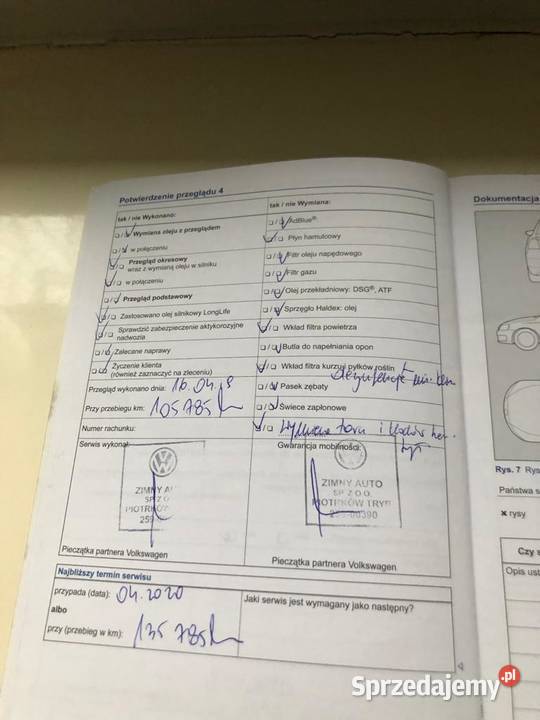 Potwierdzenie przeglądu 4
Dokumentacja
tak / nie Wykonano:
tak / nie Wymiana:
Wymiana oleju z przeglądem
w połączeniu
Przegląd okresowy
wraz z wymianą oleju w silniku
w połączeniu
Przegląd podstawowy
Zastosowano olej silnikowy LongLife
Sprawdzić zabezpieczenie aktykorozyjne
nadwozia
Zalecane naprawy
Życzenie klienta
(również zaznaczyć na zleceniu)
Przegląd wykonano dnia: 16.04.18
Przy przebiegu km: 105785
Numer rachunku:
AdBlue®
Płyn hamulcowy
Filtr oleju napędowego
Filtr gazu
Olej przekładniowy: DSG®, ATF
Sprzęgło Haldex: olej
Wkład filtra powietrza
Butla do napełniania opon
Wkład filtra kurzu/ pyłków roślin
Pasek zębaty
Świece zapłonowe
Wymiana i
Serwis wykonał:
Gwarancja mobilności:
ZIMNY A
SP Z O
PIOTRK
ZIMNY AUTO
SP Z O.O.
PIOTRKÓW TRYB
Pieczątka partnera Volkswagen
Pieczątka partnera Volkswagen
Najbliższy termin serwisu
przypada (data): 04.2020
albo
przy (przebieg w km): 135 785
Jaki serwis jest wymagany jako następny?
Rys. 7 Rys
Państwa s
× rysy
Czy s
Opis ust
Sprzedajemy.pl